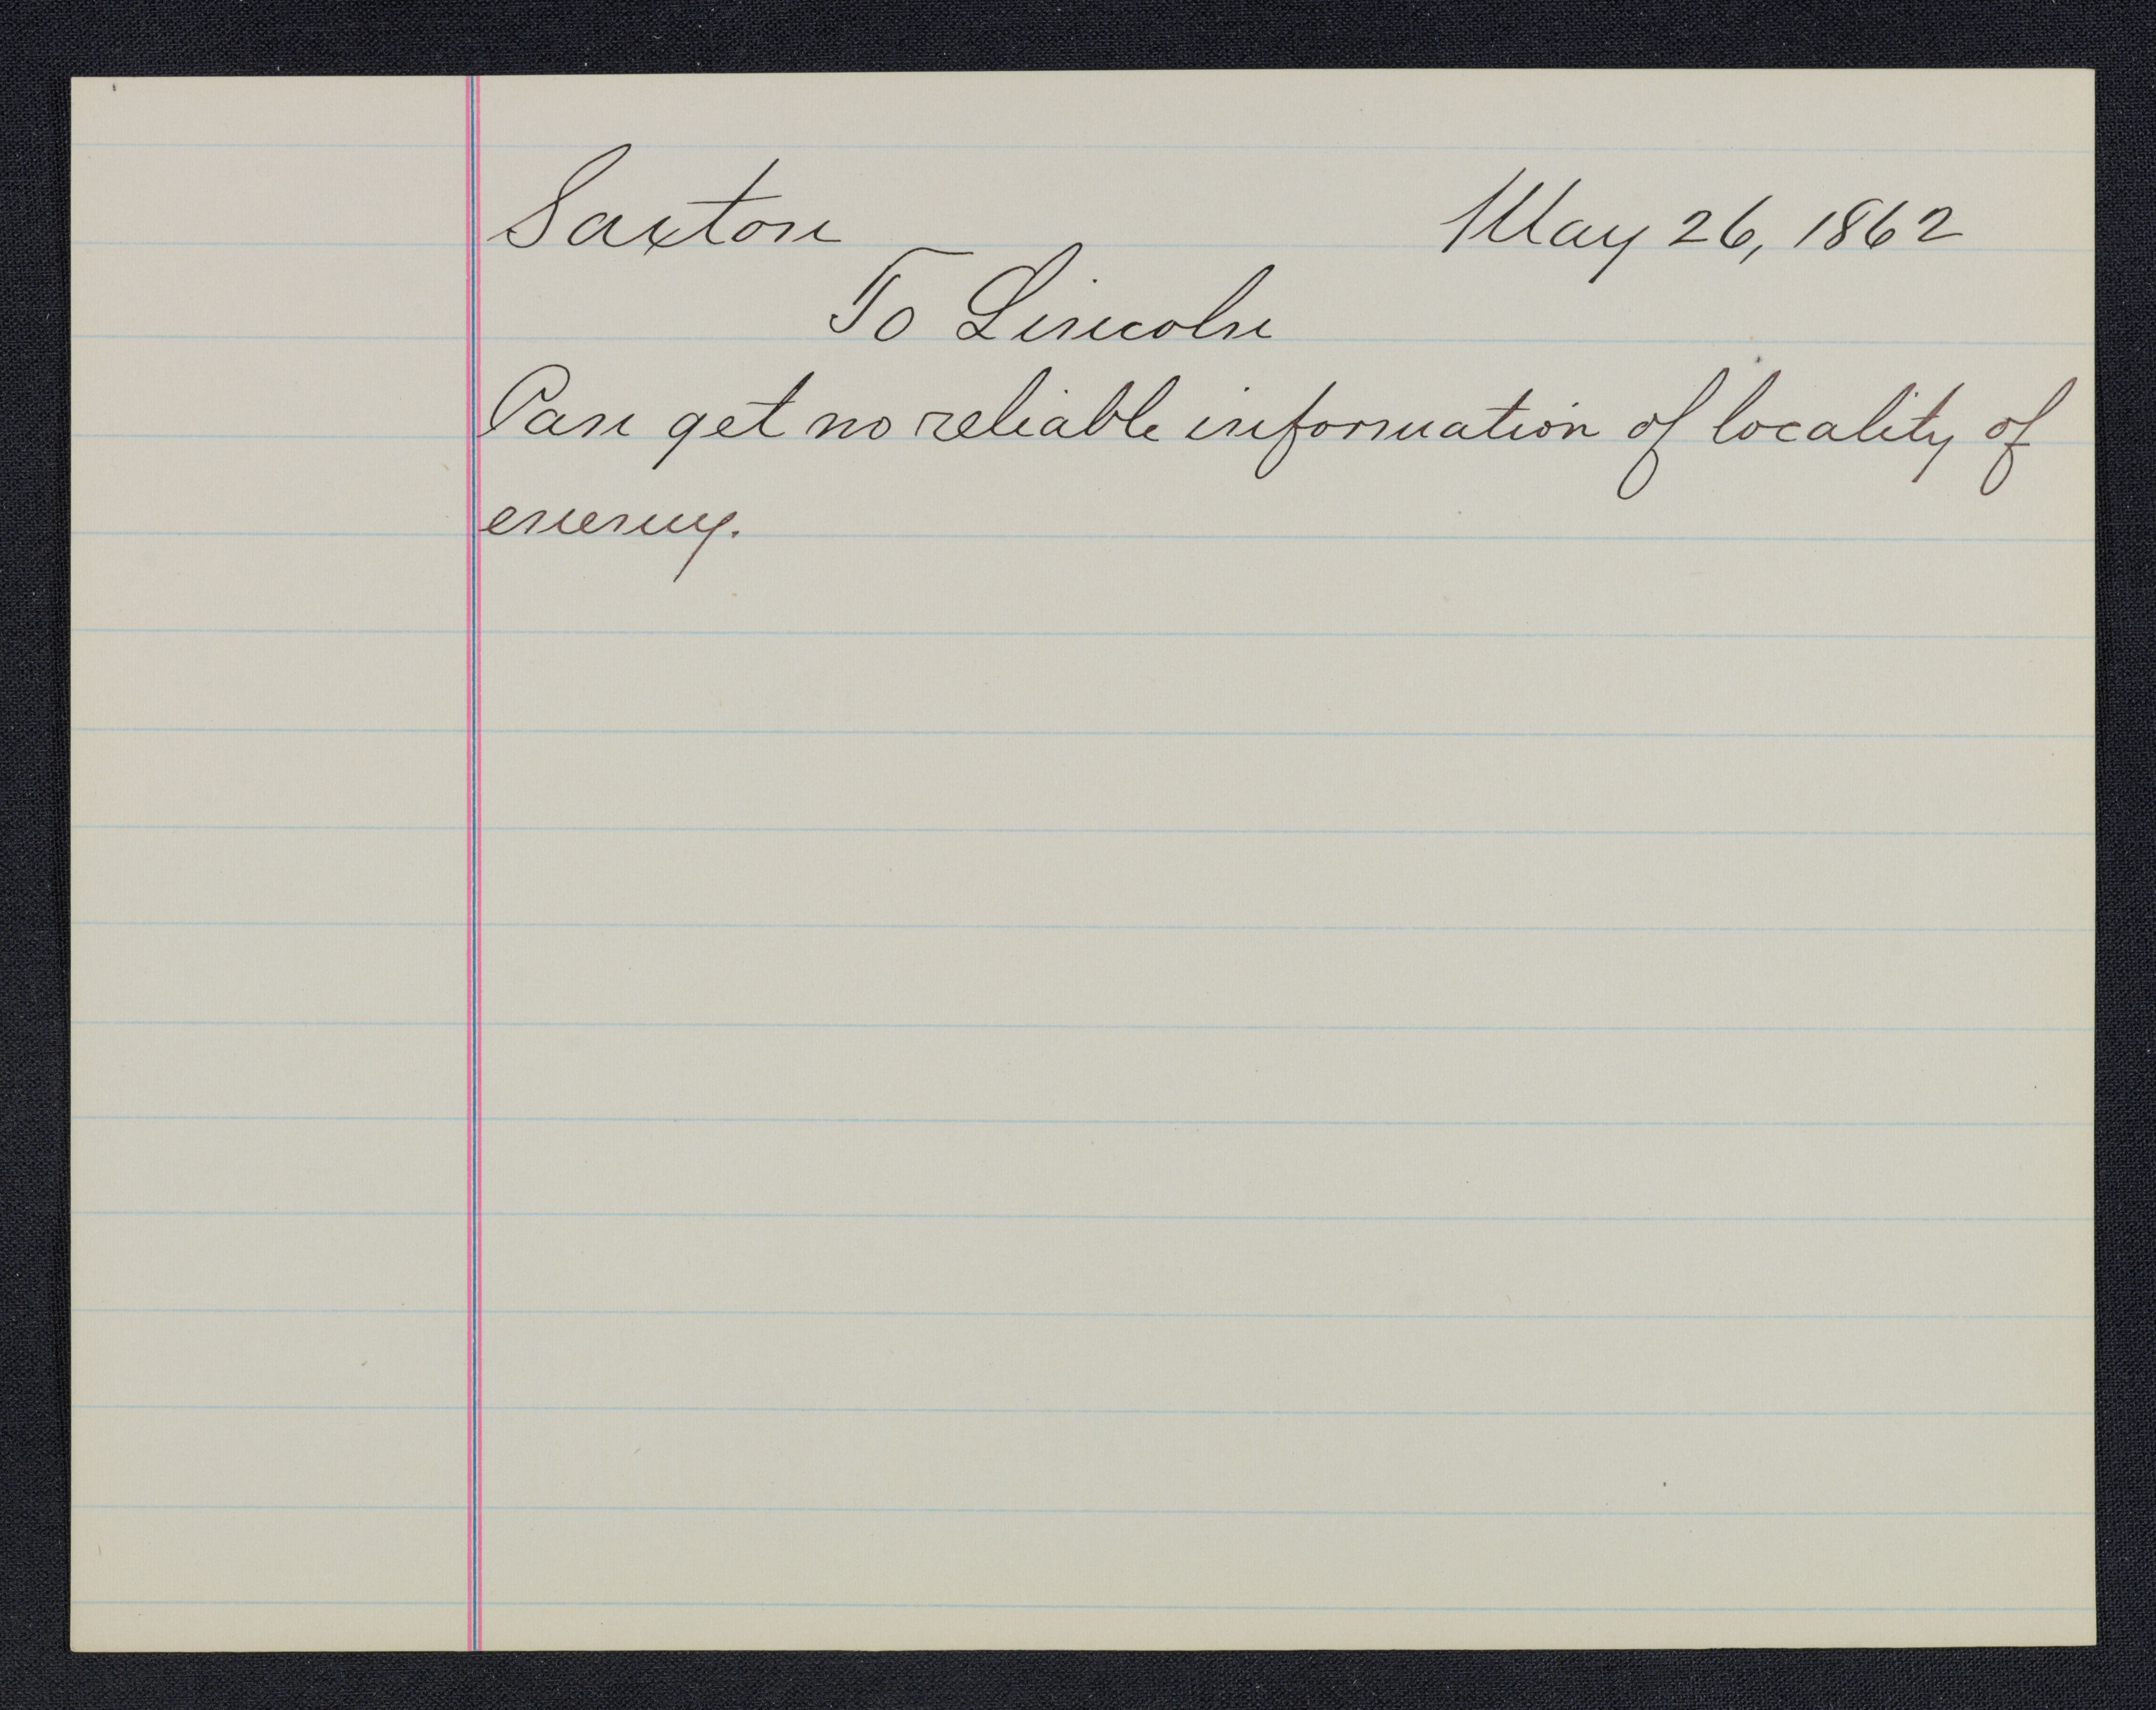 Saxton May 26, 1862
To Lincoln
Can get no reliable information of locality of
enemy.